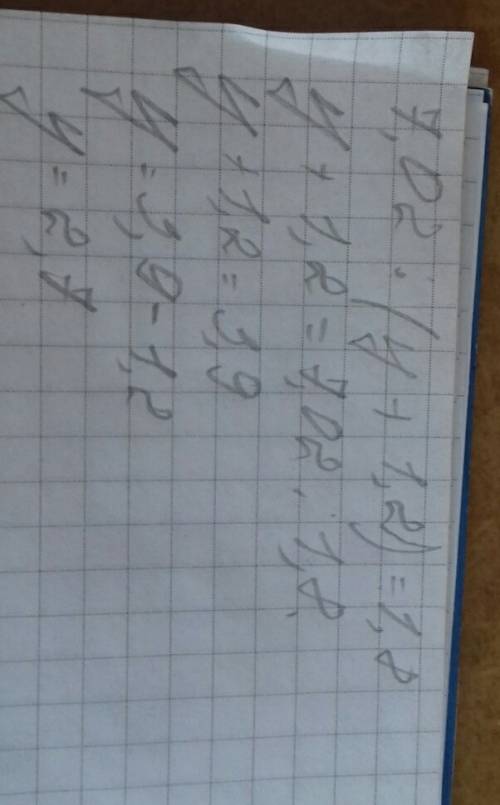 7,02 : (y + 1,2) = 1,8
y + 1,2 = 7,02 : 1,8
y + 1,2 = 3,9
y = 3,9 - 1,2
y = 2,7